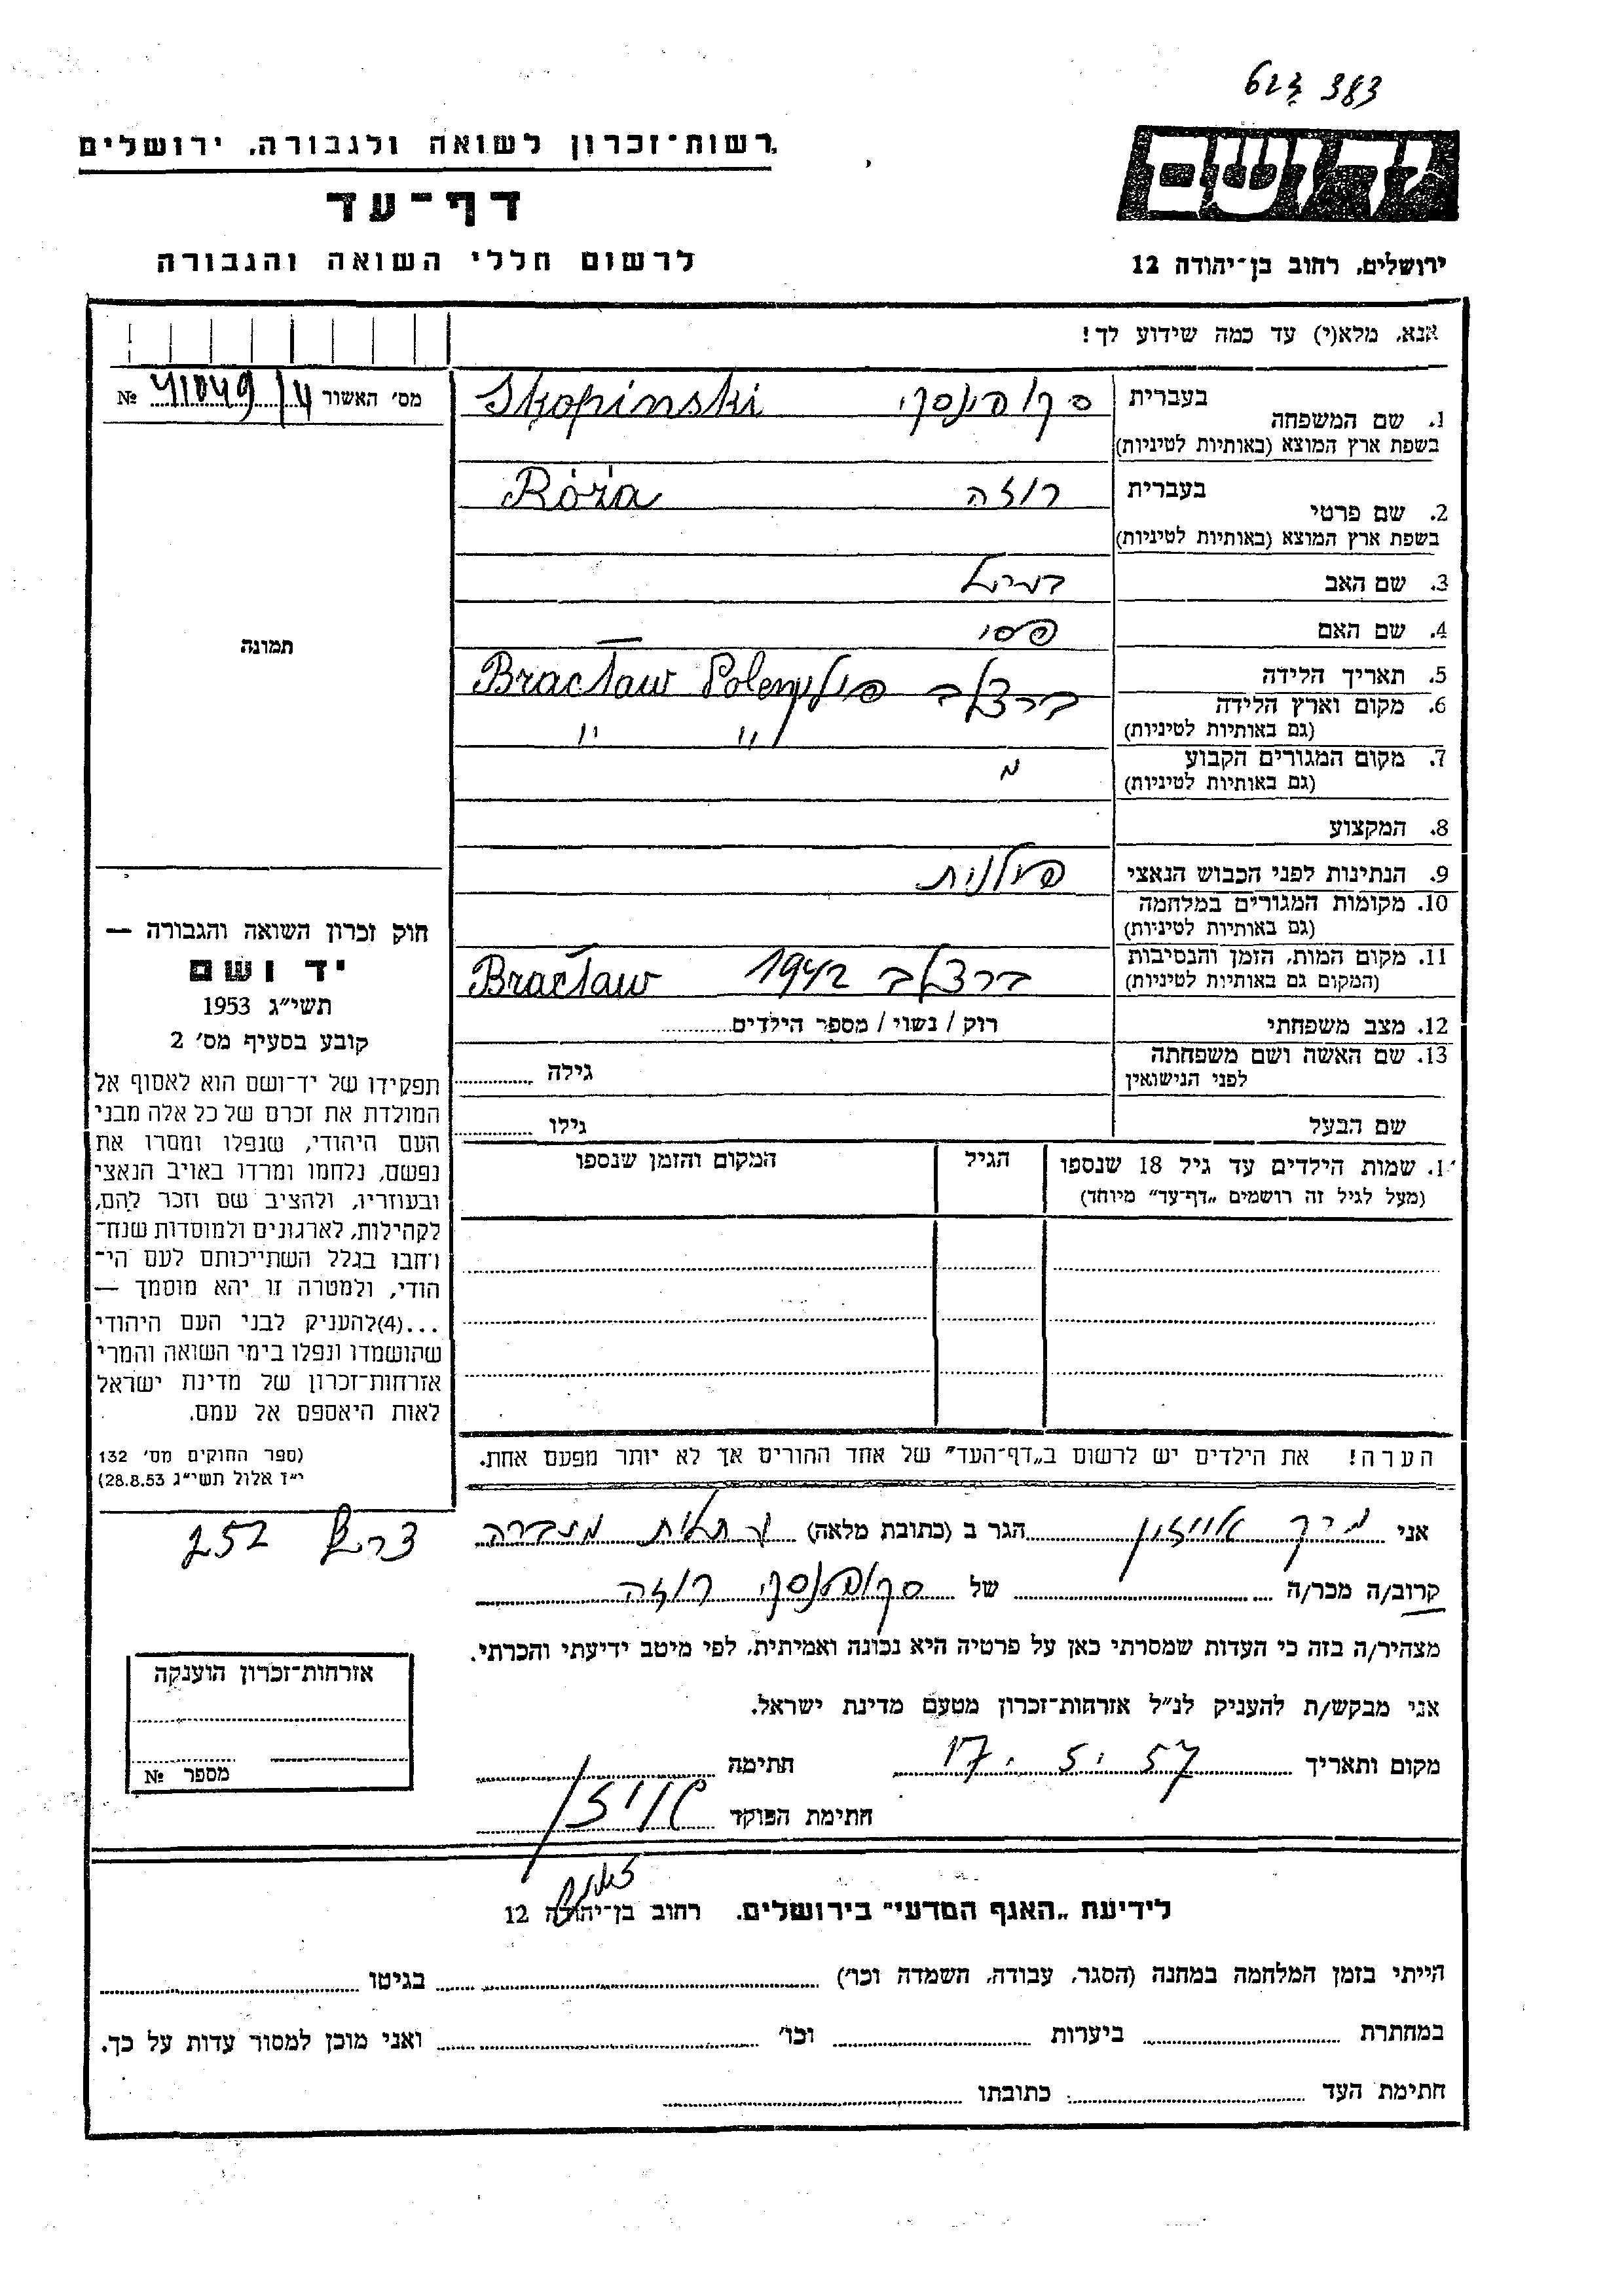 383 6173
רשות־זכרון לשואה ולגבורה, ירושלים
דף־עד
לרשום חללי השואה והגבורה
יד ושם
ירושלים, רחוב בן־יהודה 12
אנא, מלא(י) עד כמה שידוע לך!
מס׳ האשור 41049/4 №
תמונה
1. שם המשפחה בעברית סקופינסקי Skopinski
בשפת ארץ המוצא (באותיות לטיניות)
2. שם פרטי בעברית רוזה Róża
בשפת ארץ המוצא (באותיות לטיניות)
3. שם האב
4. שם האם פסי
5. תאריך הלידה
6. מקום וארץ הלידה ברצלב Bracław
(גם באותיות לטיניות)
7. מקום המגורים הקבוע " "
(גם באותיות לטיניות)
8. המקצוע
9. הנתינות לפני הכבוש הנאצי פולנית
10. מקומות המגורים במלחמה
(גם באותיות לטיניות)
11. מקום המות, הזמן והנסיבות ברצלב 1942 Bracław
(המקום גם באותיות לטיניות)
12. מצב משפחתי רוק / נשוי / מספר הילדים
13. שם האשה ושם משפחתה גילה
לפני הנישואין
שם הבעל גילו
1. שמות הילדים עד גיל 18 שנספו הגיל המקום והזמן שנספו
(מעל לגיל זה רושמים „דף־עד" מיוחד)
הערה! את הילדים יש לרשום ב„דף־העד" של אחד ההורים אך לא יותר מפעם אחת.
חוק זכרון השואה והגבורה —
יד ושם
תשי״ג 1953
קובע בסעיף מס׳ 2
תפקידו של יד־ושם הוא לאסוף אל
המולדת את זכרם של כל אלה מבני
העם היהודי, שנפלו ומסרו את
נפשם, נלחמו ומרדו באויב הנאצי
ובעוזריו, ולהציב שם וזכר להם,
לקהילות, לארגונים ולמוסדות שנח־
רחבו בגלל השתייכותם לעם הי־
הודי, ולמטרה זו יהא מוסמך —
...(4)להעניק לבני העם היהודי
שהושמדו ונפלו בימי השואה והמרי
אזרחות־זכרון של מדינת ישראל
לאות היאספם אל עמם.
(ספר החוקים מס׳ 132
י״ד אלול תשי״ג 28.8.53)
אני הגר ב (כתובת מלאה)
252
קרוב/ה מכר/ה של סקופינסקי רוזה
מצהיר/ה בזה כי העדות שמסרתי כאן על פרטיה היא נכונה ואמיתית, לפי מיטב ידיעתי והכרתי.
אני מבקש/ת להעניק לנ״ל אזרחות־זכרון מטעם מדינת ישראל.
מקום ותאריך 17.5.57 חתימה
חתימת הפוקד
אזרחות־זכרון הוענקה
מספר №
לידיעת „האגף המדעי" בירושלים, רחוב בן־יהודה 12
הייתי בזמן המלחמה במחנה (הסגר, עבודה, השמדה וכו׳) בגיטו
במחתרת ביערות וכו׳ ואני מוכן למסור עדות על כך.
חתימת העד כתובתו